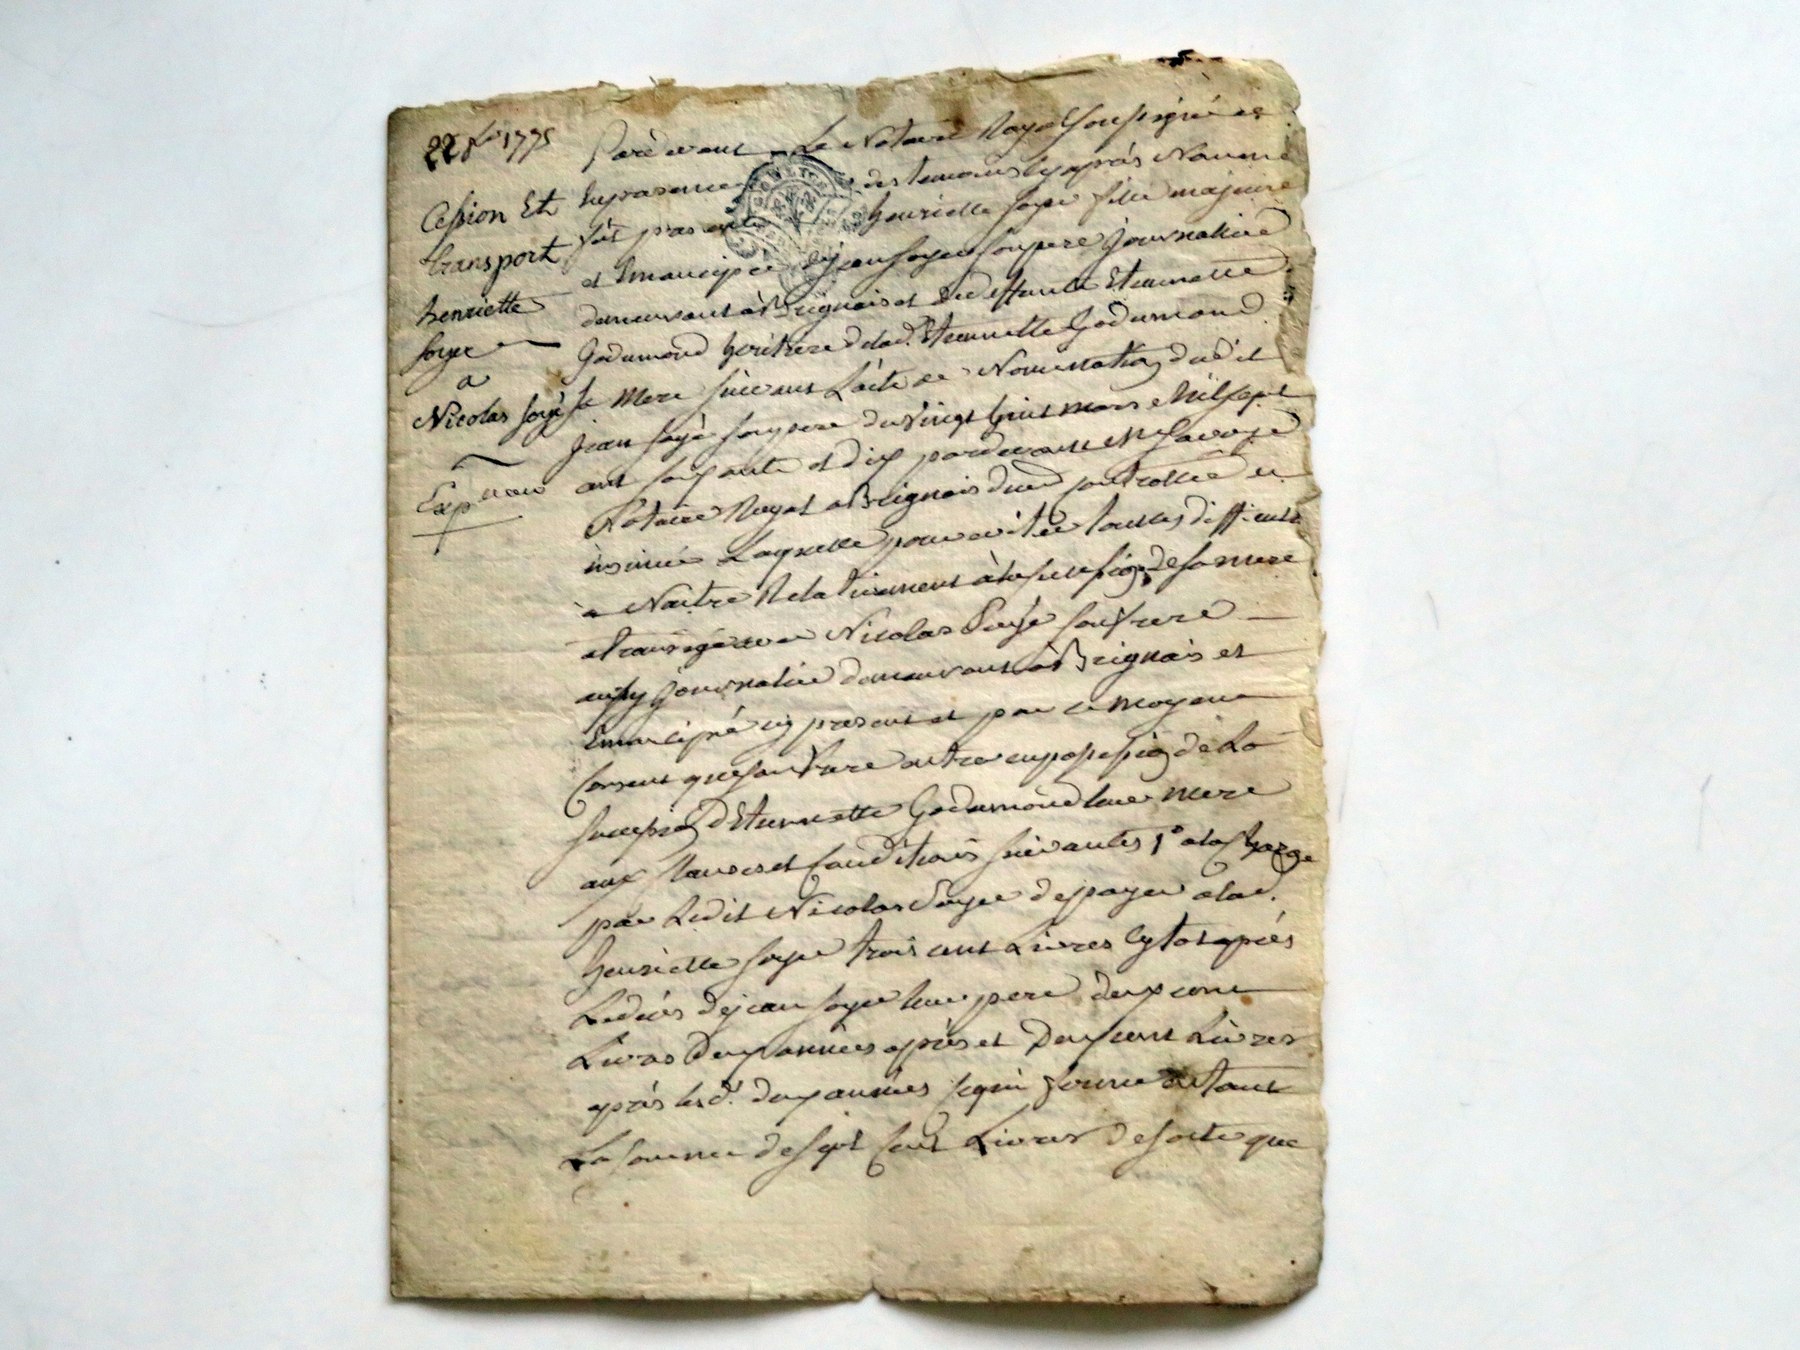 22 xbre 1775
Cession Et
transport
henriette
soyer
a
Nicolas soyé
Exp
Pardevant Le Notaire Royal soussigné et
En presence des temoins cy après Nommé
fut presente henriette soyer fille majeure
et Emancipée de jean soyer son pere journallier
demeurant à Brignais et de deffunte Etiennette
Godumond heritiere de lad. Etiennette Godumond
sa Mere suivant L'acte de Nomination dudit
jean soyé son pere du vingt huit mars Mil sept
cent soixante et dix pardevant Me
Notaire Royal a Brignais duement controllé et
insinué Laquelle pour eviter touttes difficultés
a Naitre Relativement à la succession de sa mere
a transigé avec Nicolas Soyé son frere
aussy journalier demeurant à Brignais et
Emancipé cy present et par ce moyen
Consent que son frere entre en possession de La
succession d'Etiennette Godumond leur mere
aux clauses et Conditions suivantes 1° a la charge
par Ledit Nicolas Soyer de payer a lad.
henriette soyer trois cent Livres sytot après
Le deces de jean soyer leur pere deux cent
Livres deux années après et deux cent Livres
après lesd. deux années ce qui forme
La somme de sept Cent Livres de sorte que